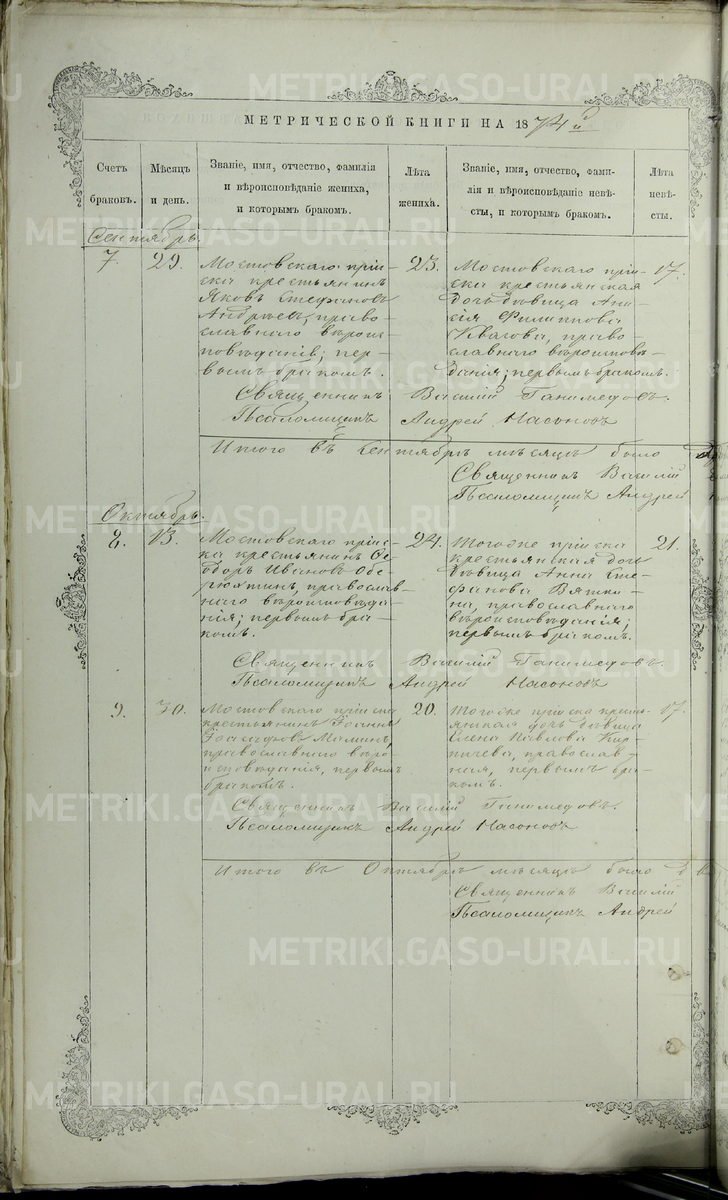 МЕТРИЧЕСКОЙ КНИГИ НА 1874й
Счетъ браковъ.
Мѣсяцъ и день.
Званіе, имя, отчество, фамилія
и вѣроисповѣданіе жениха,
и которымъ бракомъ.
Лѣта жениха.
Званіе, имя, отчество, фами-
лія и вѣроисповѣданіе невѣ-
сты, и которымъ бракомъ.
Лѣта невѣ-
сты.
Сентябрь.
7. 29.
Мостовскаго пріи-
ска крестьянинъ
Яковъ Стефановъ
Андреевъ, право-
славнаго вѣроис-
повѣданія; пер-
вымъ бракомъ.
23.
Мостовскаго пріи-
ска крестьянская
дочь дѣвица Ани-
сія Филиппова
православ-
славнаго вѣроисповѣ-
данія; первымъ бракомъ.
17.
Священникъ Василій Ганимедовъ.
Псаломщикъ Андрей Насоновъ
Итого въ Сентябрѣ мѣсяцѣ было
Священникъ Василій
Псаломщикъ Андрей
Октябрь.
8. 13.
Мостовскаго пріис-
ка крестьянинъ Ѳе-
доръ Ивановъ Обе-
рюхтинъ, православ-
наго вѣроисповѣда-
нія; первымъ бра-
комъ.
24.
Тогоже пріиска
крестьянская дочь
дѣвица Анна Сте-
фанова Вятки-
на, православнаго
вѣроисповѣданія;
первымъ бракомъ.
21.
Священникъ Василій Ганимедовъ.
Псаломщикъ Андрей Насоновъ
9. 30.
Мостовскаго пріиска
крестьянинъ Іоаннъ
Малинъ,
православнаго вѣро
исповѣданія, первымъ
бракомъ.
20.
Тогоже пріиска кресть-
янская дочь дѣвица
Елена Павлова Кир-
пичева, православ-
ная, первымъ бра-
комъ.
17.
Священникъ Василій Ганимедовъ.
Псаломщикъ Андрей Насоновъ
Итого въ Октябрѣ мѣсяцѣ было
Священникъ Василій
Псаломщикъ Андрей
METRIKI.GASO-URAL.RU